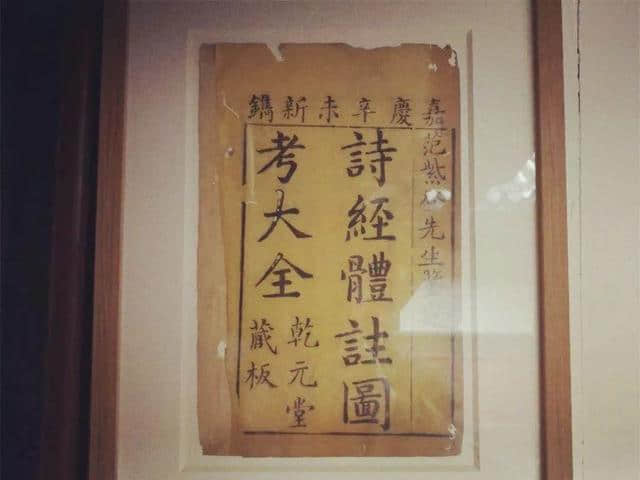 嘉慶辛未新鐫
范紫 先生
詩經體註圖
考大全
乾元堂
藏板